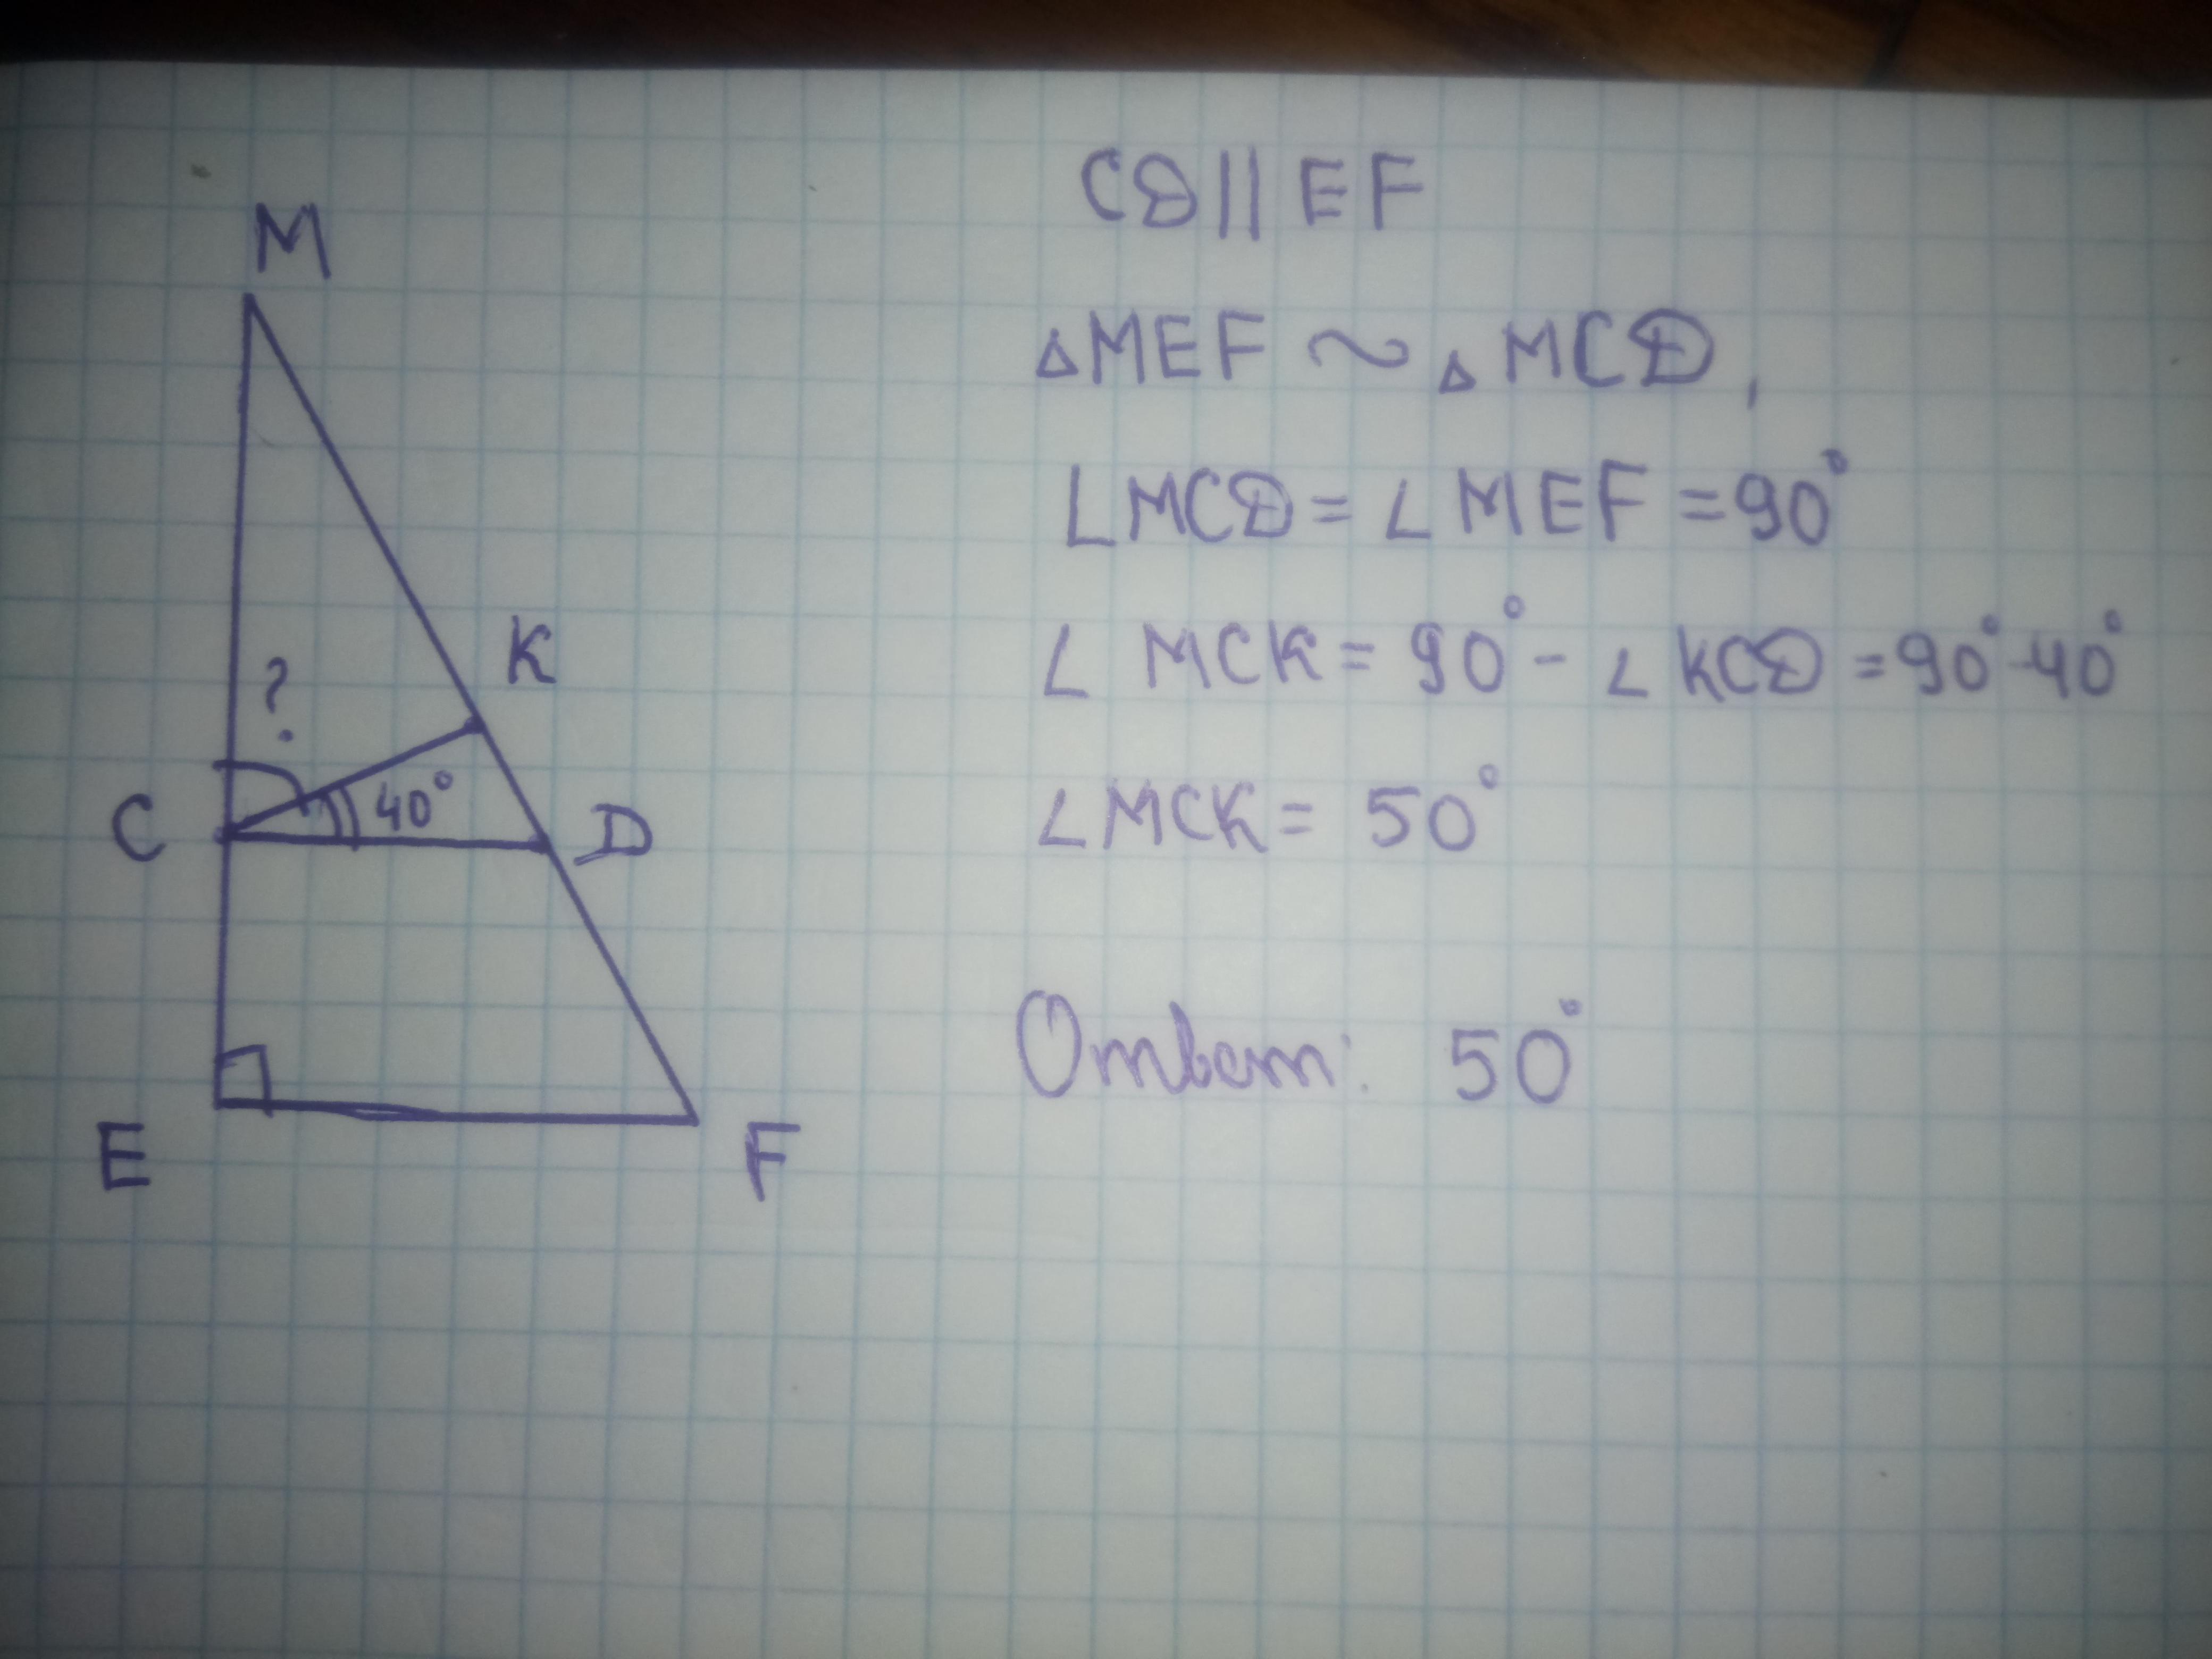 M
K
?
C
40°
D
E
F
CD||EF
△MEF ~ △MCD,
∠MCD=∠MEF=90°
∠MCK=90°-∠KCD=90°-40°
∠MCK=50°
Ответ: 50°